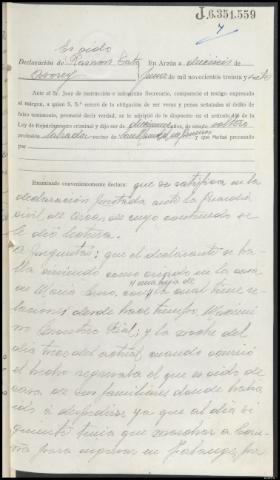 J.6351559
7
Criado
Declaración de Ramón Cató En Arzúa a dieciséis de
Orosey Junio de mil novecientos treinta y siete
Ante el Sr. Juez de instrucción e infrascrito Secretario, compareció el testigo expresado
al margen, a quien S. S.ª enteró de la obligación de ser veraz y penas señaladas al delito de
falso testimonio, prometió decir verdad, se le advirtió de lo dispuesto en el artículo 446 de la
Ley de Enjuiciamiento criminal y dijo ser de años de edad, de estado soltero
profesión labrador vecino de y que procesado
por
Examinado convenientemente declara: que se ratifica en la
declaración prestada ante la Guardia
civil, de cuyo contenido se
le dió lectura.
A preguntas: que el declarante se ha-
lla sirviendo como criado en la casa
de María y una hija de
con la cual tiene re-
laciones desde hace tiempo,
y la noche del
día tres del actual, cuando ocurrió
el hecho regresaba el que es oído de
casa de sus familiares donde había
ido a despedirse ya que al día si-
guiente tenía que marchar a Coru-
ña para ingresar en Falange, por